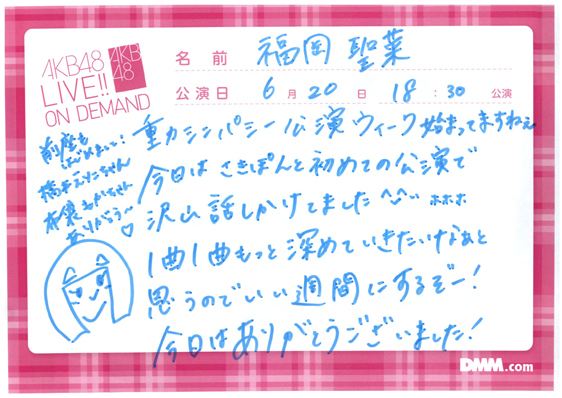 AKB48
LIVE!!
ON DEMAND
AKB
48
名前 福岡 聖菜
公演日 6月20日 18:30 公演
重力シンパシー公演ウィーク始まってますねぇ
今日はさきぽんと初めての公演で
沢山話しかけてました ホホホ
1曲1曲もっと深めていきたいなぁと
思うのでいい週間にするぞー!
今日はありがとうございました!
前座も
ちゃん
ちゃん
ありがとう〜♡
DMM.com